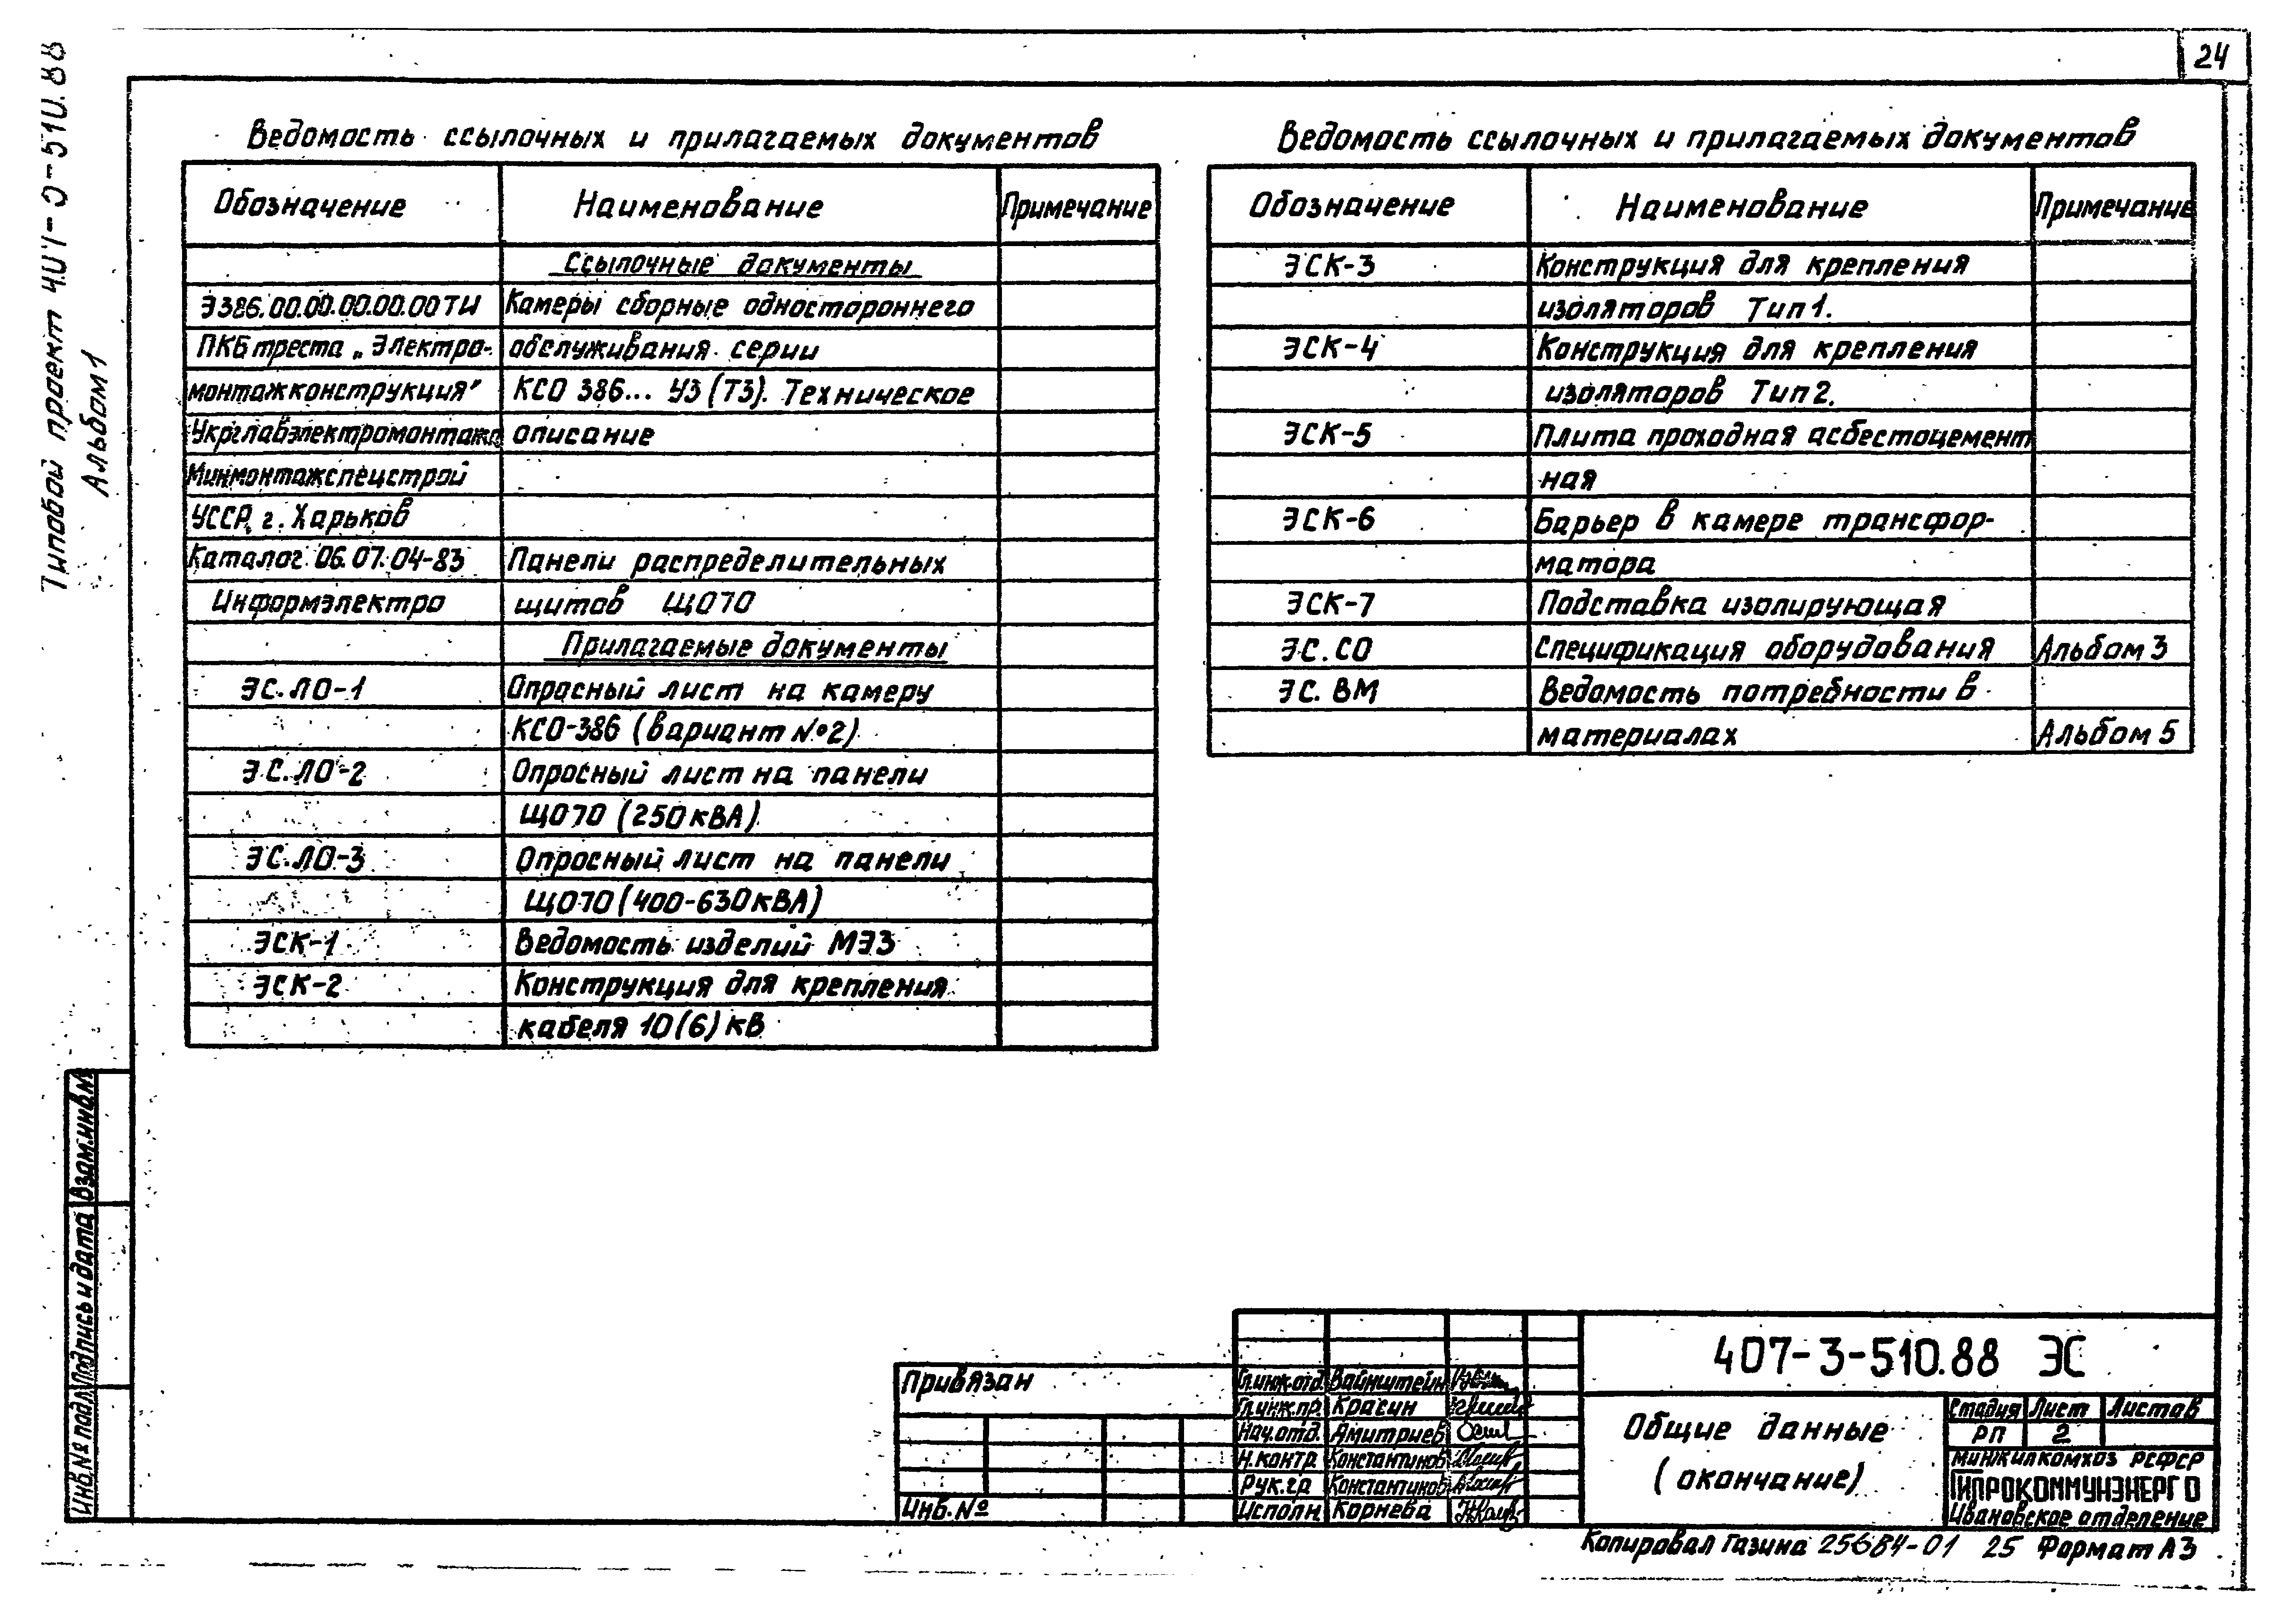 24
Типовой проект 407-3-510.88
Альбом 1
Ведомость ссылочных и прилагаемых документов
Обозначение Наименование Примечание
Ссылочные документы
Э386.00.00.00.00.00ТИ Камеры сборные одностороннего
ПКБ треста „Электро- обслуживания серии
монтажконструкция" КСО 386... У3 (Т3). Техническое
Укрглавэлектромонтажа описание
Минмонтажспецстрой
УССР, г. Харьков
Каталог 06.07.04-83 Панели распределительных
Информэлектро щитов ЩО70
Прилагаемые документы
ЭС.ЛО-1 Опросный лист на камеру
КСО-386 (вариант №2)
ЭС.ЛО-2 Опросный лист на панели
ЩО70 (250кВА)
ЭС.ЛО-3 Опросный лист на панели
ЩО70 (400-630кВА)
ЭСК-1 Ведомость изделий МЭЗ
ЭСК-2 Конструкция для крепления
кабеля 10(6) кВ
Ведомость ссылочных и прилагаемых документов
Обозначение Наименование Примечание
ЭСК-3 Конструкция для крепления
изоляторов Тип 1.
ЭСК-4 Конструкция для крепления
изоляторов Тип 2.
ЭСК-5 Плита проходная асбестоцемент
ная
ЭСК-6 Барьер в камере трансфор-
матора
ЭСК-7 Подставка изолирующая
ЭС.СО Спецификация оборудования Альбом 3
ЭС.ВМ Ведомость потребности в
материалах Альбом 5
Взам.инв.№
Подпись и дата
Инв.№ подл.
Привязан
Инв.№
Гл.инж.отд. Вайнштейн
Гл.инж.пр. Красин
Нач.отд. Дмитриев
Н.контр Константинов
Рук.гр Константинов
Исполн. Корнева
407-3-510.88 ЭС
Общие данные
(окончание)
Стадия Лист Листов
РП 2
Минжилкомхоз РСФСР
ГИПРОКОММУНЭНЕРГО
Ивановское отделение
Копировал Газина 25684-01 25 Формат А3